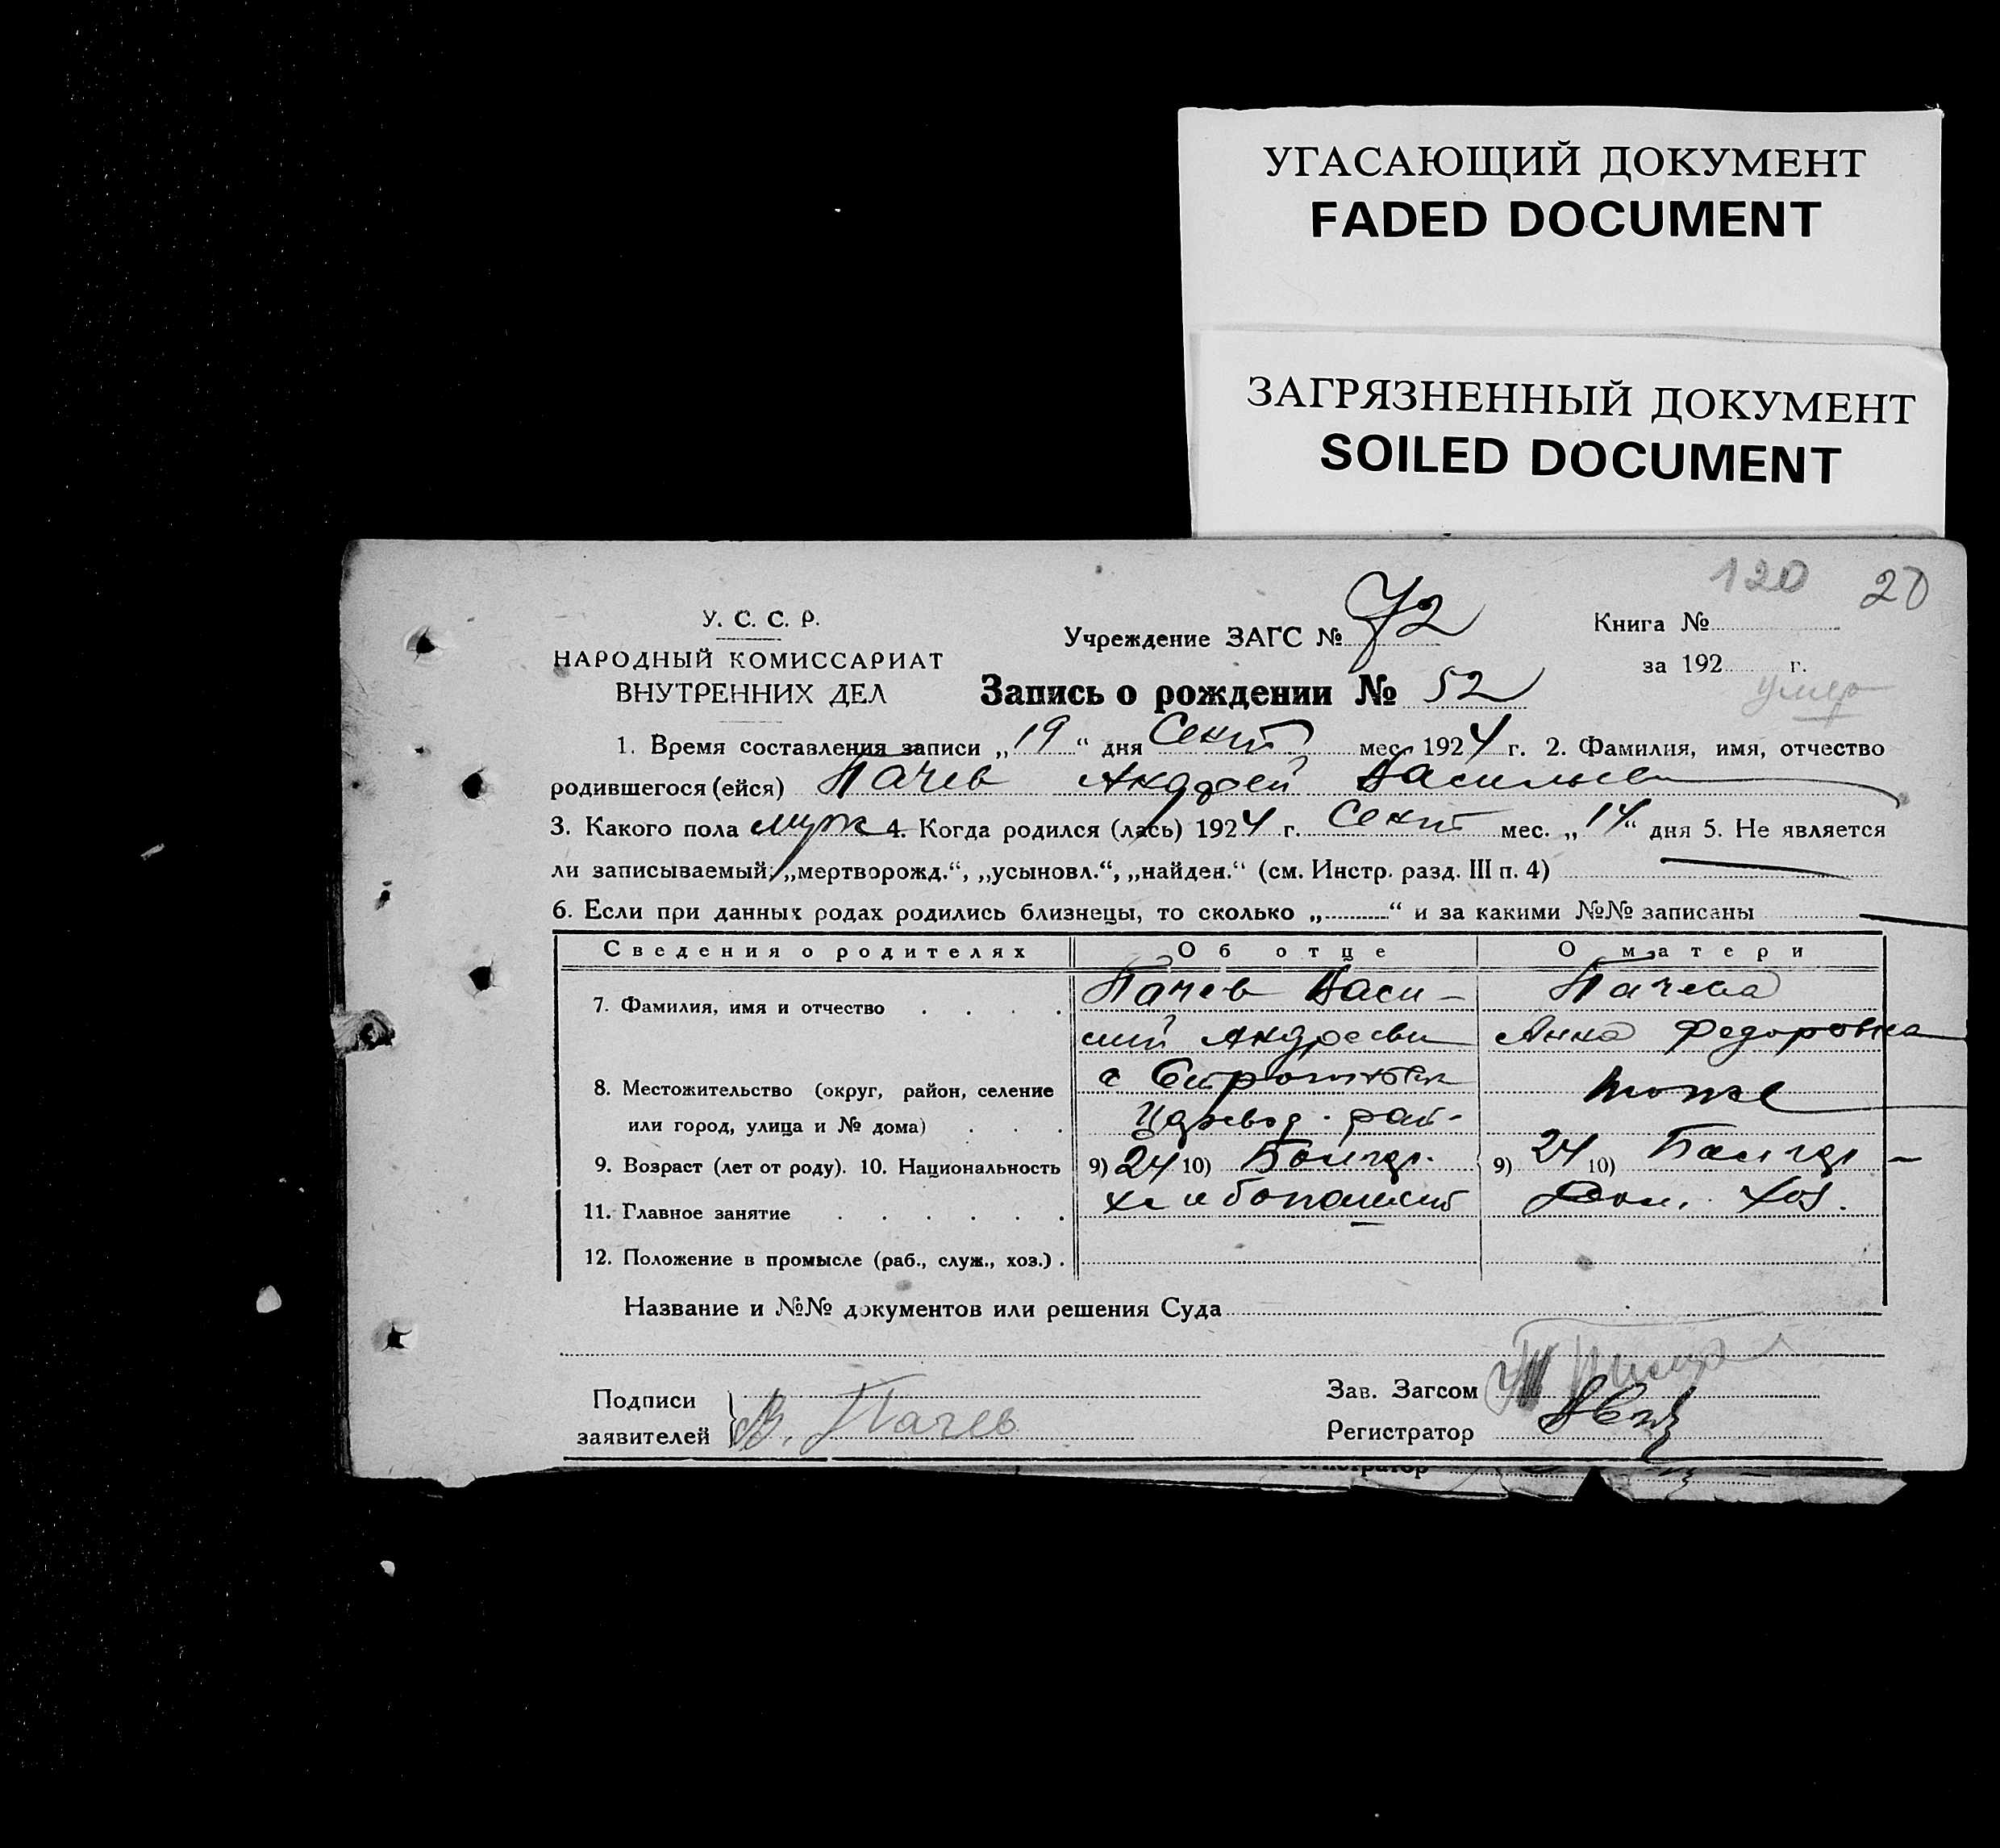 УГАСАЮЩИЙ ДОКУМЕНТ
FADED DOCUMENT
ЗАГРЯЗНЕННЫЙ ДОКУМЕНТ
SOILED DOCUMENT
120 20
У. С. С. Р.
НАРОДНЫЙ КОМИССАРИАТ
ВНУТРЕННИХ ДЕЛ
Учреждение ЗАГС № 72
Книга №
за 192 г.
умер
Запись о рождении № 52
1. Время составления записи „19“ дня Сент мес. 1924 г. 2. Фамилия, имя, отчество
родившегося (ейся) Пачев Андрей Васильев
3. Какого пола муж 4. Когда родился (лась) 1924 г. Сент мес. „14“ дня 5. Не является
ли записываемый: „мертворожд.“, „усыновл.“, „найден.“ (см. Инстр. разд. III п. 4)
6. Если при данных родах родились близнецы, то сколько „ “ и за какими №№ записаны
Сведения о родителях Об отце О матери
7. Фамилия, имя и отчество . . . . Пачев Васи- Пачева
лий Андрееви Анна Федоровна
8. Местожительство (округ, район, селение с тоже
или город, улица и № дома) . . . рай-
9. Возраст (лет от роду). 10. Национальность 9) 24 10) Болгар. 9) 24 10) Болгар -
11. Главное занятие . . . . . . Хлебопашест Дом. Хоз.
12. Положение в промысле (раб., служ., хоз.) .
Название и №№ документов или решения Суда
Подписи
заявителей В. Пачев
Зав. Загсом
Регистратор
Регистратор